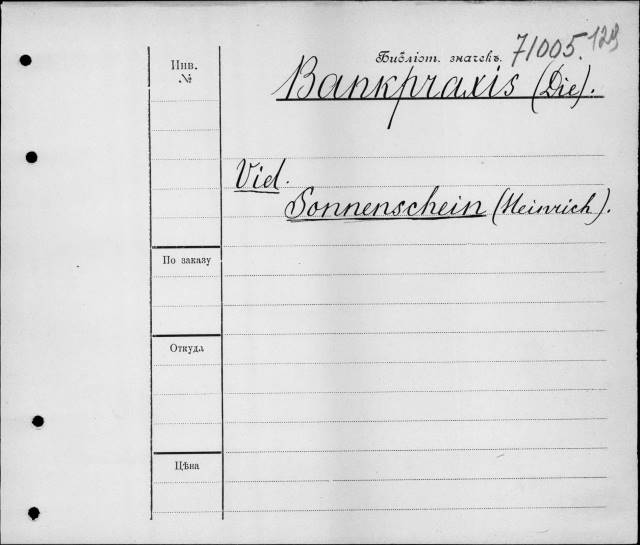 Библіот. значекъ. 71005. 129
Инв.
№
Bankpraxis (Die).
Vid.
Sonnenschein (Heinrich).
По заказу
Откуда
Цѣна